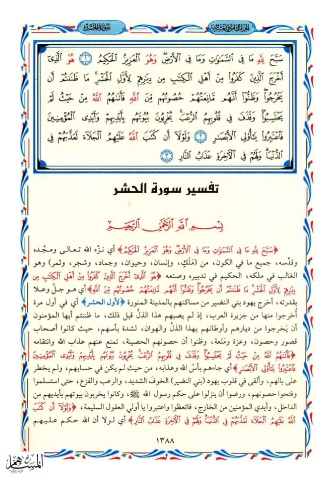 سورة الحشر
سَبَّحَ لِلَّهِ مَا فِي السَّمَٰوَٰتِ وَمَا فِي الْأَرْضِ وَهُوَ الْعَزِيزُ الْحَكِيمُ ١ هُوَ الَّذِي
أَخْرَجَ الَّذِينَ كَفَرُوا مِنْ أَهْلِ الْكِتَٰبِ مِن دِيَٰرِهِمْ لِأَوَّلِ الْحَشْرِ مَا ظَنَنتُمْ أَن
يَخْرُجُوا وَظَنُّوا أَنَّهُم مَّانِعَتُهُمْ حُصُونُهُم مِّنَ اللَّهِ فَأَتَىٰهُمُ اللَّهُ مِنْ حَيْثُ لَمْ
يَحْتَسِبُوا وَقَذَفَ فِي قُلُوبِهِمُ الرُّعْبَ يُخْرِبُونَ بُيُوتَهُم بِأَيْدِيهِمْ وَأَيْدِي الْمُؤْمِنِينَ
فَاعْتَبِرُوا يَٰأُولِي الْأَبْصَٰرِ ٢ وَلَوْلَا أَن كَتَبَ اللَّهُ عَلَيْهِمُ الْجَلَاءَ لَعَذَّبَهُمْ فِي
الدُّنْيَا وَلَهُمْ فِي الْآخِرَةِ عَذَابُ النَّارِ ٣
تفسير سورة الحشر
بِسْمِ اللَّهِ الرَّحْمَٰنِ الرَّحِيمِ
﴿سَبَّحَ لِلَّهِ مَا فِي السَّمَٰوَٰتِ وَمَا فِي الْأَرْضِ وَهُوَ الْعَزِيزُ الْحَكِيمُ﴾ أي نزَّه الله تعالى ومجَّده
وقدَّسه، جميع ما في الكون، من (مَلَكٍ، وإنسان، وحيوان، وجماد، وشجر، وثمر) وهو
الغالب في ملكه، الحكيم في تدبيره وصنعه ﴿هُوَ الَّذِي أَخْرَجَ الَّذِينَ كَفَرُوا مِنْ أَهْلِ الْكِتَٰبِ مِن
دِيَٰرِهِمْ لِأَوَّلِ الْحَشْرِ مَا ظَنَنتُمْ أَن يَخْرُجُوا وَظَنُّوا أَنَّهُم مَّانِعَتُهُمْ حُصُونُهُم مِّنَ اللَّهِ﴾ أي هو جلَّ وعلا
بقدرته، أخرج يهود بني النضير من مساكنهم بالمدينة المنورة ﴿لأول الحشر﴾ أي في أول مرة
أُخرجوا منها من جزيرة العرب، إذ لم يصبهم هذا الذلُّ قبل ذلك، ما ظننتم أيها المؤمنون
أن يخرجوا من ديارهم وأوطانهم بهذا الذلِّ والهوان، لشدة بأسهم، حيث كانوا أصحاب
قصور وحصون، وعزة ومنعة، وظنوا أن حصونهم الحصينة، تمنع عنهم عذاب الله وانتقامه
﴿فَأَتَىٰهُمُ اللَّهُ مِنْ حَيْثُ لَمْ يَحْتَسِبُوا وَقَذَفَ فِي قُلُوبِهِمُ الرُّعْبَ يُخْرِبُونَ بُيُوتَهُم بِأَيْدِيهِمْ وَأَيْدِي الْمُؤْمِنِينَ
فَاعْتَبِرُوا يَٰأُولِي الْأَبْصَٰرِ﴾ أي جاءهم بأسُ الله وعذابه، من حيث لم يكن في حسابهم، ولم يخطر
على بالهم، وألقى في قلوب يهود (بني النضير) الخوف الشديد، والرعب والفزع، حتى استسلموا
وفتحوا حصونهم، ورضوا أن ينزلوا على حكم رسول الله ﷺ، وكانوا يخربون بيوتهم بأيديهم من
الداخل، وأيدي المؤمنين من الخارج، فاتعظوا واعتبروا يا أولي العقول السليمة، ﴿وَلَوْلَا أَن كَتَبَ
اللَّهُ عَلَيْهِمُ الْجَلَاءَ لَعَذَّبَهُمْ فِي الدُّنْيَا وَلَهُمْ فِي الْآخِرَةِ عَذَابُ النَّارِ﴾ أي لولا أن الله حكم عليهم
١٣٨٨